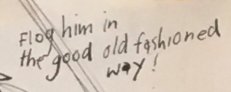 Flog him in
the good old fashioned
way!